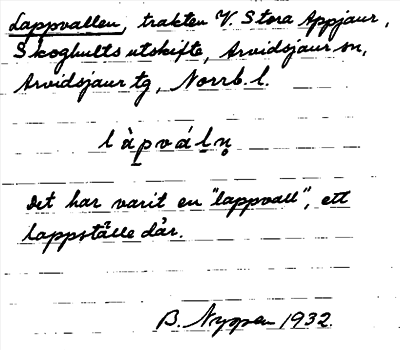 Lappvallen, trakten V. Stora Appjaur,
Skoghults utskifte, Arvidsjaur sn,
Arvidsjaur tg, Norrb. l.
làpválṇ
Det har varit en "lappvall", ett
lappställe där.
B. 1932.